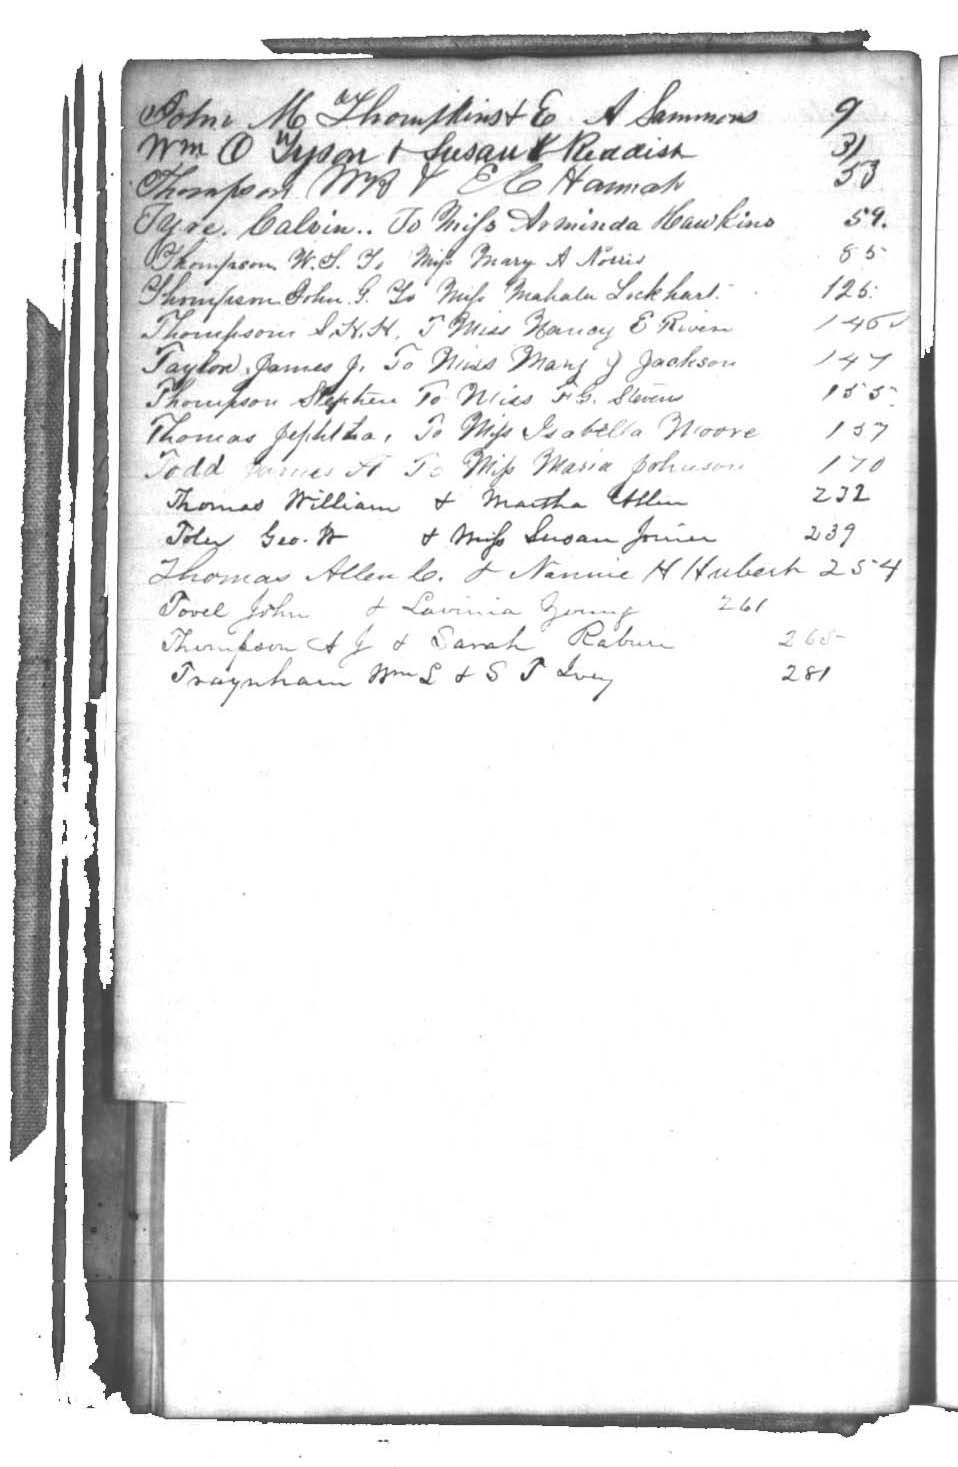 John M Thompkins & E A Sammons 9
Wm O Tyson & Susan K Reddish 31
Thompson WR & E C Hannah 53
Tyre. Calvin.. To Miss Arminda Hawkins 59.
Thompson W.S. To Miss Mary A Norris 85
Thompson John. G. To Miss Mahala Lockhart. 125.
Thompson S.H.H. T Miss Nancy E
Taylor, James J. To Miss Mary J Jackson 147
Thompson Stephen To Miss F.G. Stevens 155.
Thomas Jephtha, To Miss Isabella Moore 157
Todd James A To Miss Maria Johnson 170
Thomas William & Martha Allen 232
Toler Geo. W & Miss Susan Joiner 239
Thomas Allen C. & Nannie H Hubert 254
Tovel John & Lavinia Young 261
Thompson A J & Sarah Raburn 265
Traynham Wm L & S T Ivey 281